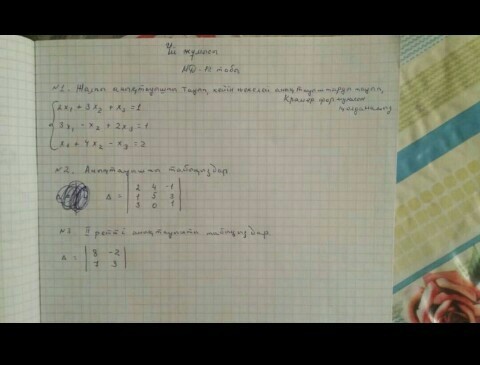 Үй жұмысы
№1. Жалпы анықтауышты тауып, кейін жекелей анықтауыштарды тауып,
Крамер формуласын қолданамыз
2x₁ + 3x₂ + x₃ = 1
3x₁ - x₂ + 2x₃ = 1
x₁ + 4x₂ - x₃ = 2
№2. Анықтауышты табыңыздар
Δ = | 2 4 -1 |
| 1 5 3 |
| 3 0 1 |
№3. II ретті анықтауышты табыңыздар
= | 8 -2 |
| 7 3 |